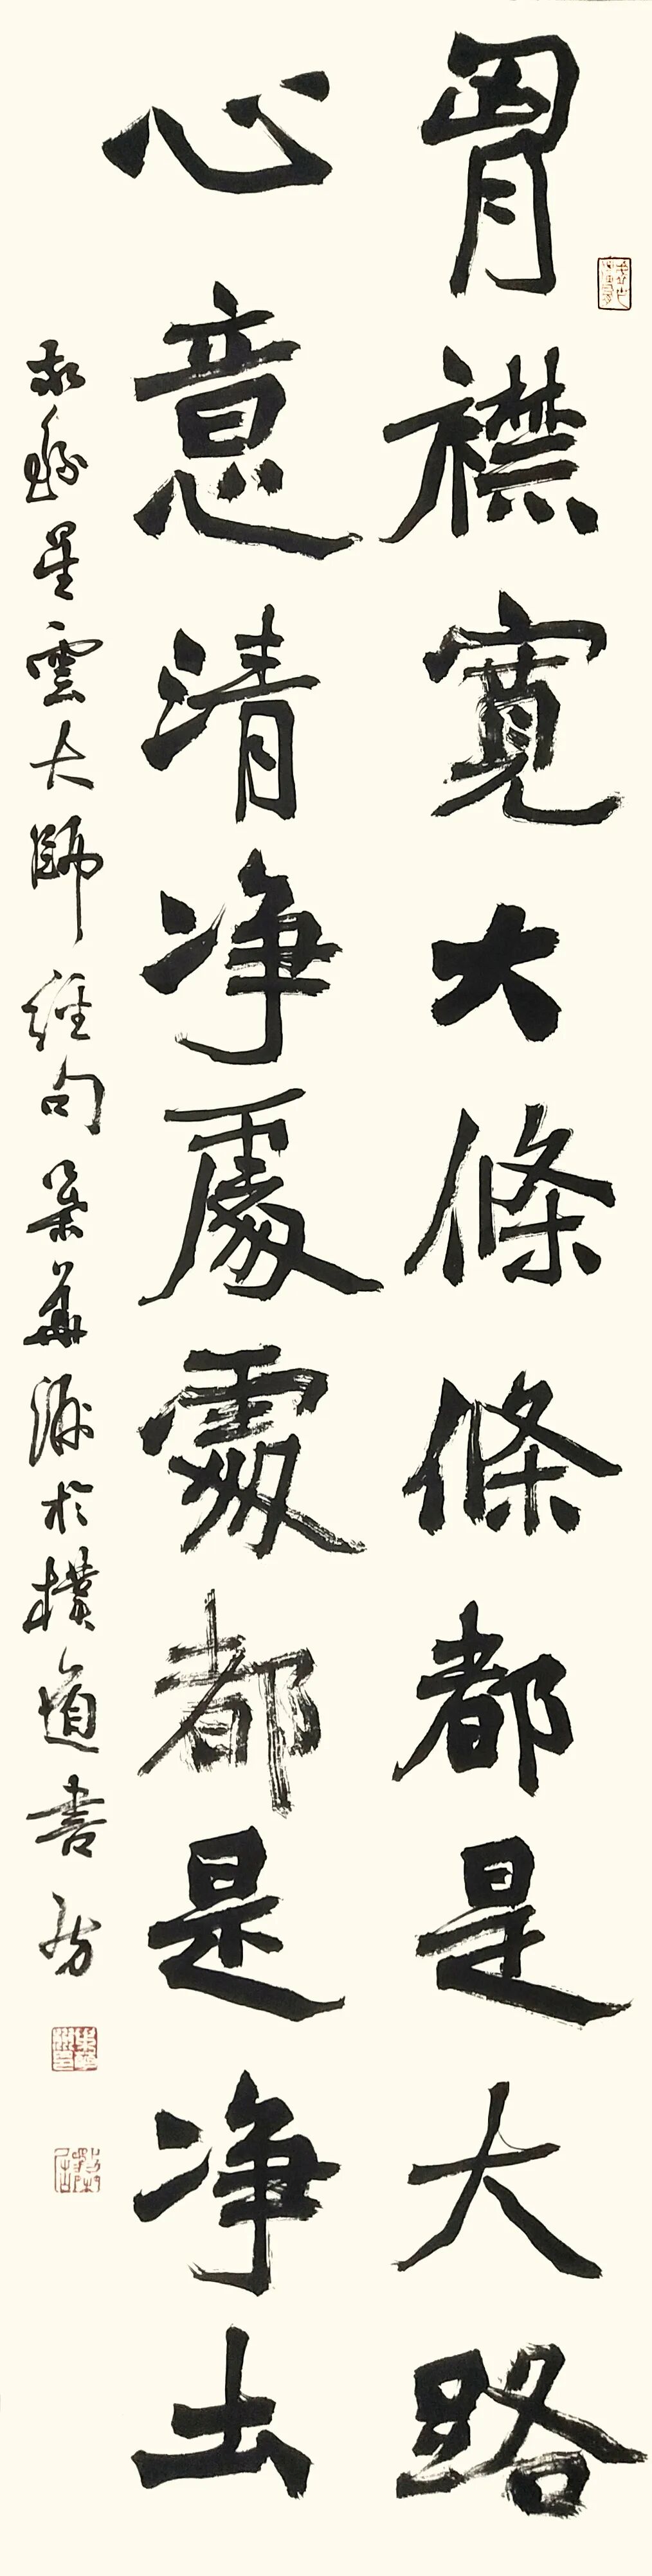 胷襟寬大條條都是大路
心意清净處處都是净土
敬錄星雲大師經句 華於樸道書房